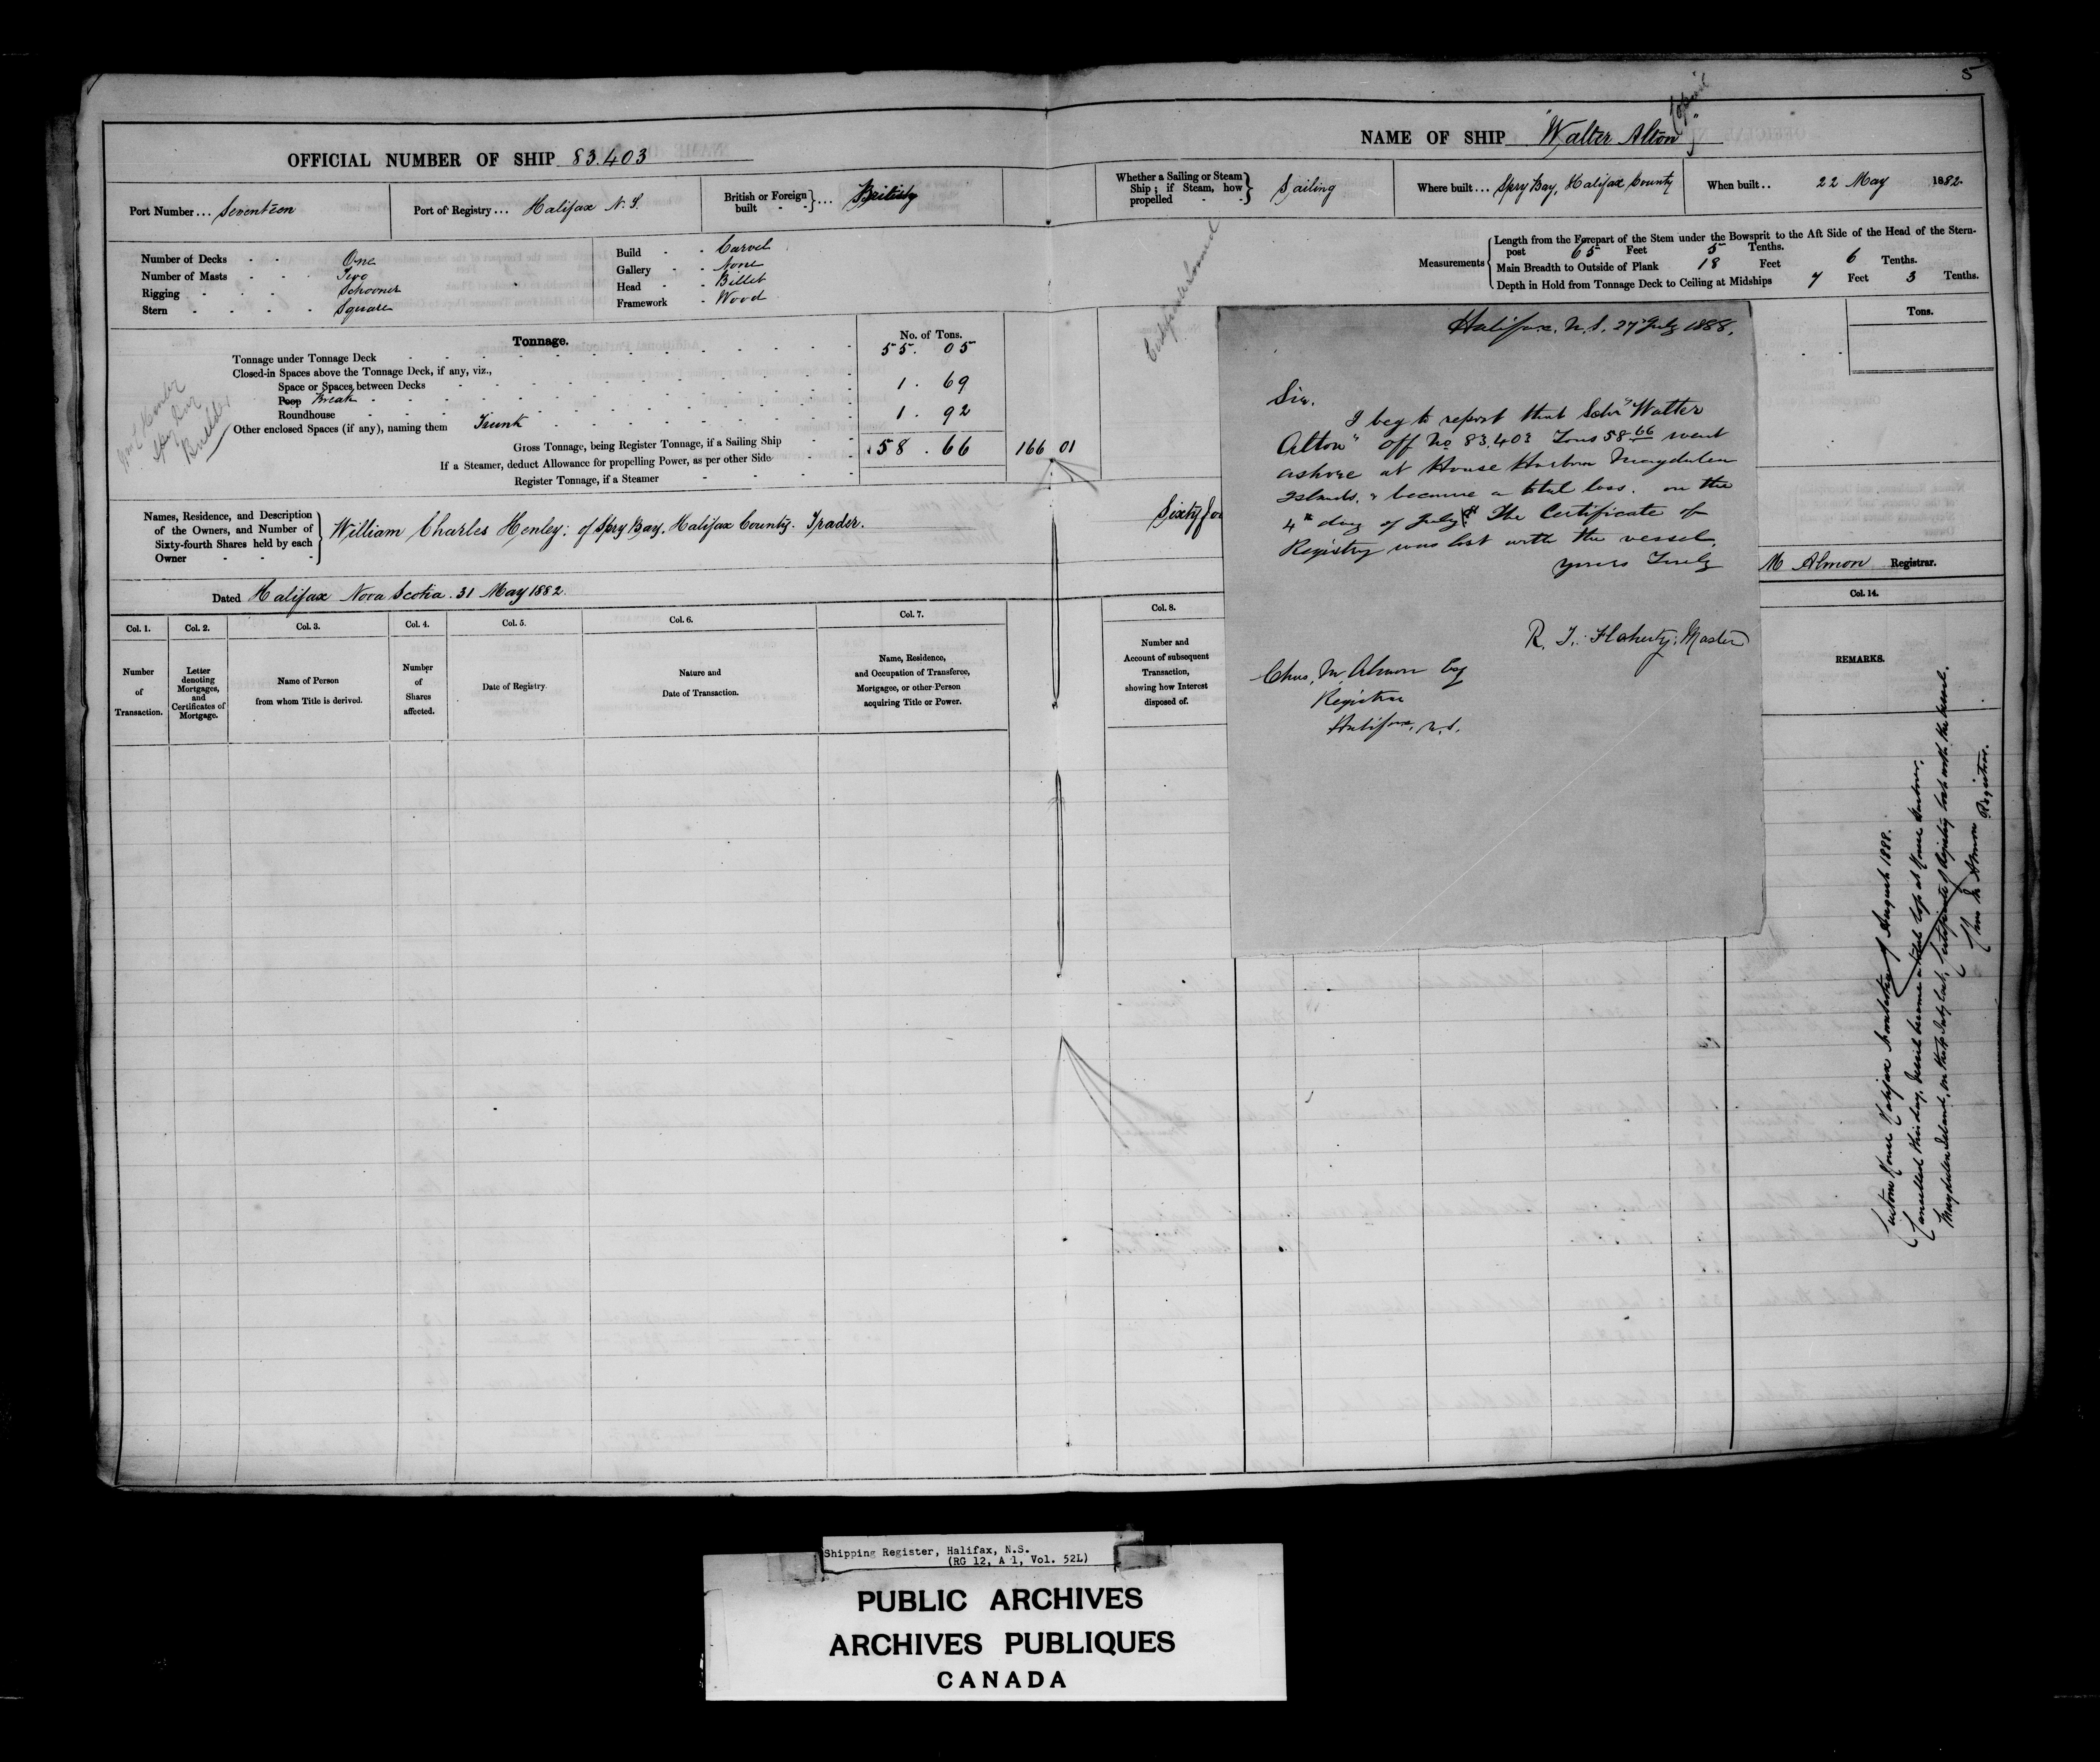 5
OFFICIAL NUMBER OF SHIP 83.403
NAME OF SHIP "Walter Alton"
Copied
Port Number... Seventeen
Port of Registry... Halifax N.S.
British or Foreign built } ... British
Whether a Sailing or Steam Ship; if Steam, how propelled } Sailing
Where built... Spry Bay, Halifax County
When built.. 22 May 1882.
Number of Decks One
Number of Masts Two
Rigging Schooner
Stern Square
Build Carvel
Gallery None
Head Billet
Framework Wood
Measurements
Length from the Forepart of the Stem under the Bowsprit to the Aft Side of the Head of the Stern-
post 65 Feet 5 Tenths.
Main Breadth to Outside of Plank 18 Feet 6 Tenths.
Depth in Hold from Tonnage Deck to Ceiling at Midships 7 Feet 3 Tenths.
Tonnage.
No. of Tons.
Tonnage under Tonnage Deck 55. 05
Closed-in Spaces above the Tonnage Deck, if any, viz.,
Space or Spaces between Decks
Poop Break 1. 69
Roundhouse
Other enclosed Spaces (if any), naming them Trunk 1. 92
Gross Tonnage, being Register Tonnage, if a Sailing Ship 58. 66
166 01
If a Steamer, deduct Allowance for propelling Power, as per other Side
Register Tonnage, if a Steamer
Tons.
Builder
Names, Residence, and Description
of the Owners, and Number of
Sixty-fourth Shares held by each
Owner
William Charles Henley; of Spry Bay, Halifax County. Trader.
Sixty fou
Dated Halifax Nova Scotia. 31 May 1882.
M Almon Registrar.
Col. 1.
Number
of
Transaction.
Col. 2.
Letter
denoting
Mortgages,
and
Certificates of
Mortgage.
Col. 3.
Name of Person
from whom Title is derived.
Col. 4.
Number
of
Shares
affected.
Col. 5.
Date of Registry.
Col. 6.
Nature and
Date of Transaction.
Col. 7.
Name, Residence,
and Occupation of Transferee,
Mortgagee, or other Person
acquiring Title or Power.
Col. 8.
Number and
Account of subsequent
Transaction,
showing how Interest
disposed of.
Col. 14.
REMARKS.
Halifax, N.S. 27 July 1888.
Sir.
I beg to report that Schr "Walter
Alton" Off No 83,403 Tons 58 66 went
ashore at House Harbor Magdalen
Islands, & became a total loss. on the
4th day of July. The Certificate of
Registry was lost with the vessel.
yours Truly
R. T. Flaherty, Master
Chas. M. Almon Esq
Registrar
Halifax, N.S.
Custom House Halifax Nova Scotia 7 August 1888.
Cancelled this day, Vessel became a total loss at House Harbor,
Magdalen Island, on the 4 July last, Certificate of Registry lost with the vessel.
Chas M Almon Registrar.
Shipping Register, Halifax, N.S.
(RG 12, A 1, Vol. 52L)
PUBLIC ARCHIVES
ARCHIVES PUBLIQUES
CANADA